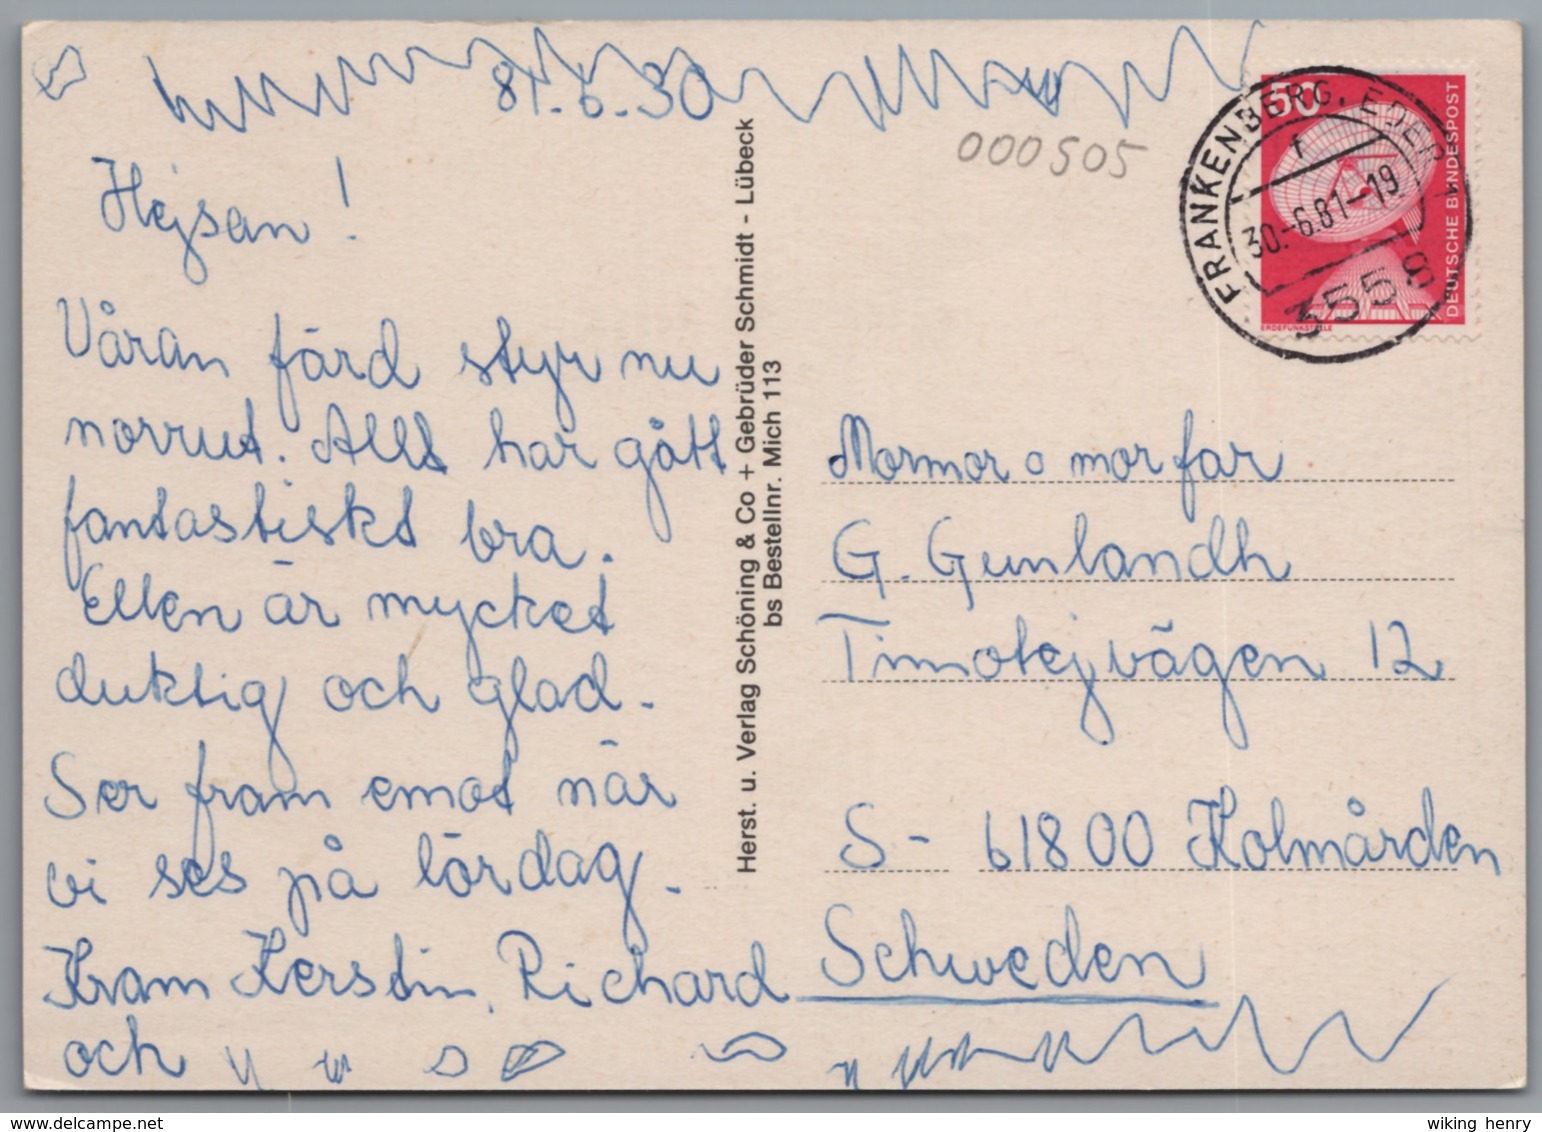 81.6.30
000505
Hejsan!
Våran färd styr nu
norrut. Allt har gått
fantastiskt bra.
Ellen är mycket
duktig och glad.
Ser fram emot när
vi ses på lördag.
Kram Kerstin, Richard
och
Herst. u. Verlag Schöning & Co + Gebrüder Schmidt - Lübeck
bs Bestellnr. Mich 113
50
DEUTSCHE BUNDESPOST
ERDEFUNKSTELLE
FRANKENBERG, EDER 1
f
30.-6.81-19
3558
Mormor o morfar
G. Gunlandh
Timotejvägen 12
S- 61800 Kolmården
Schweden
wiking henry